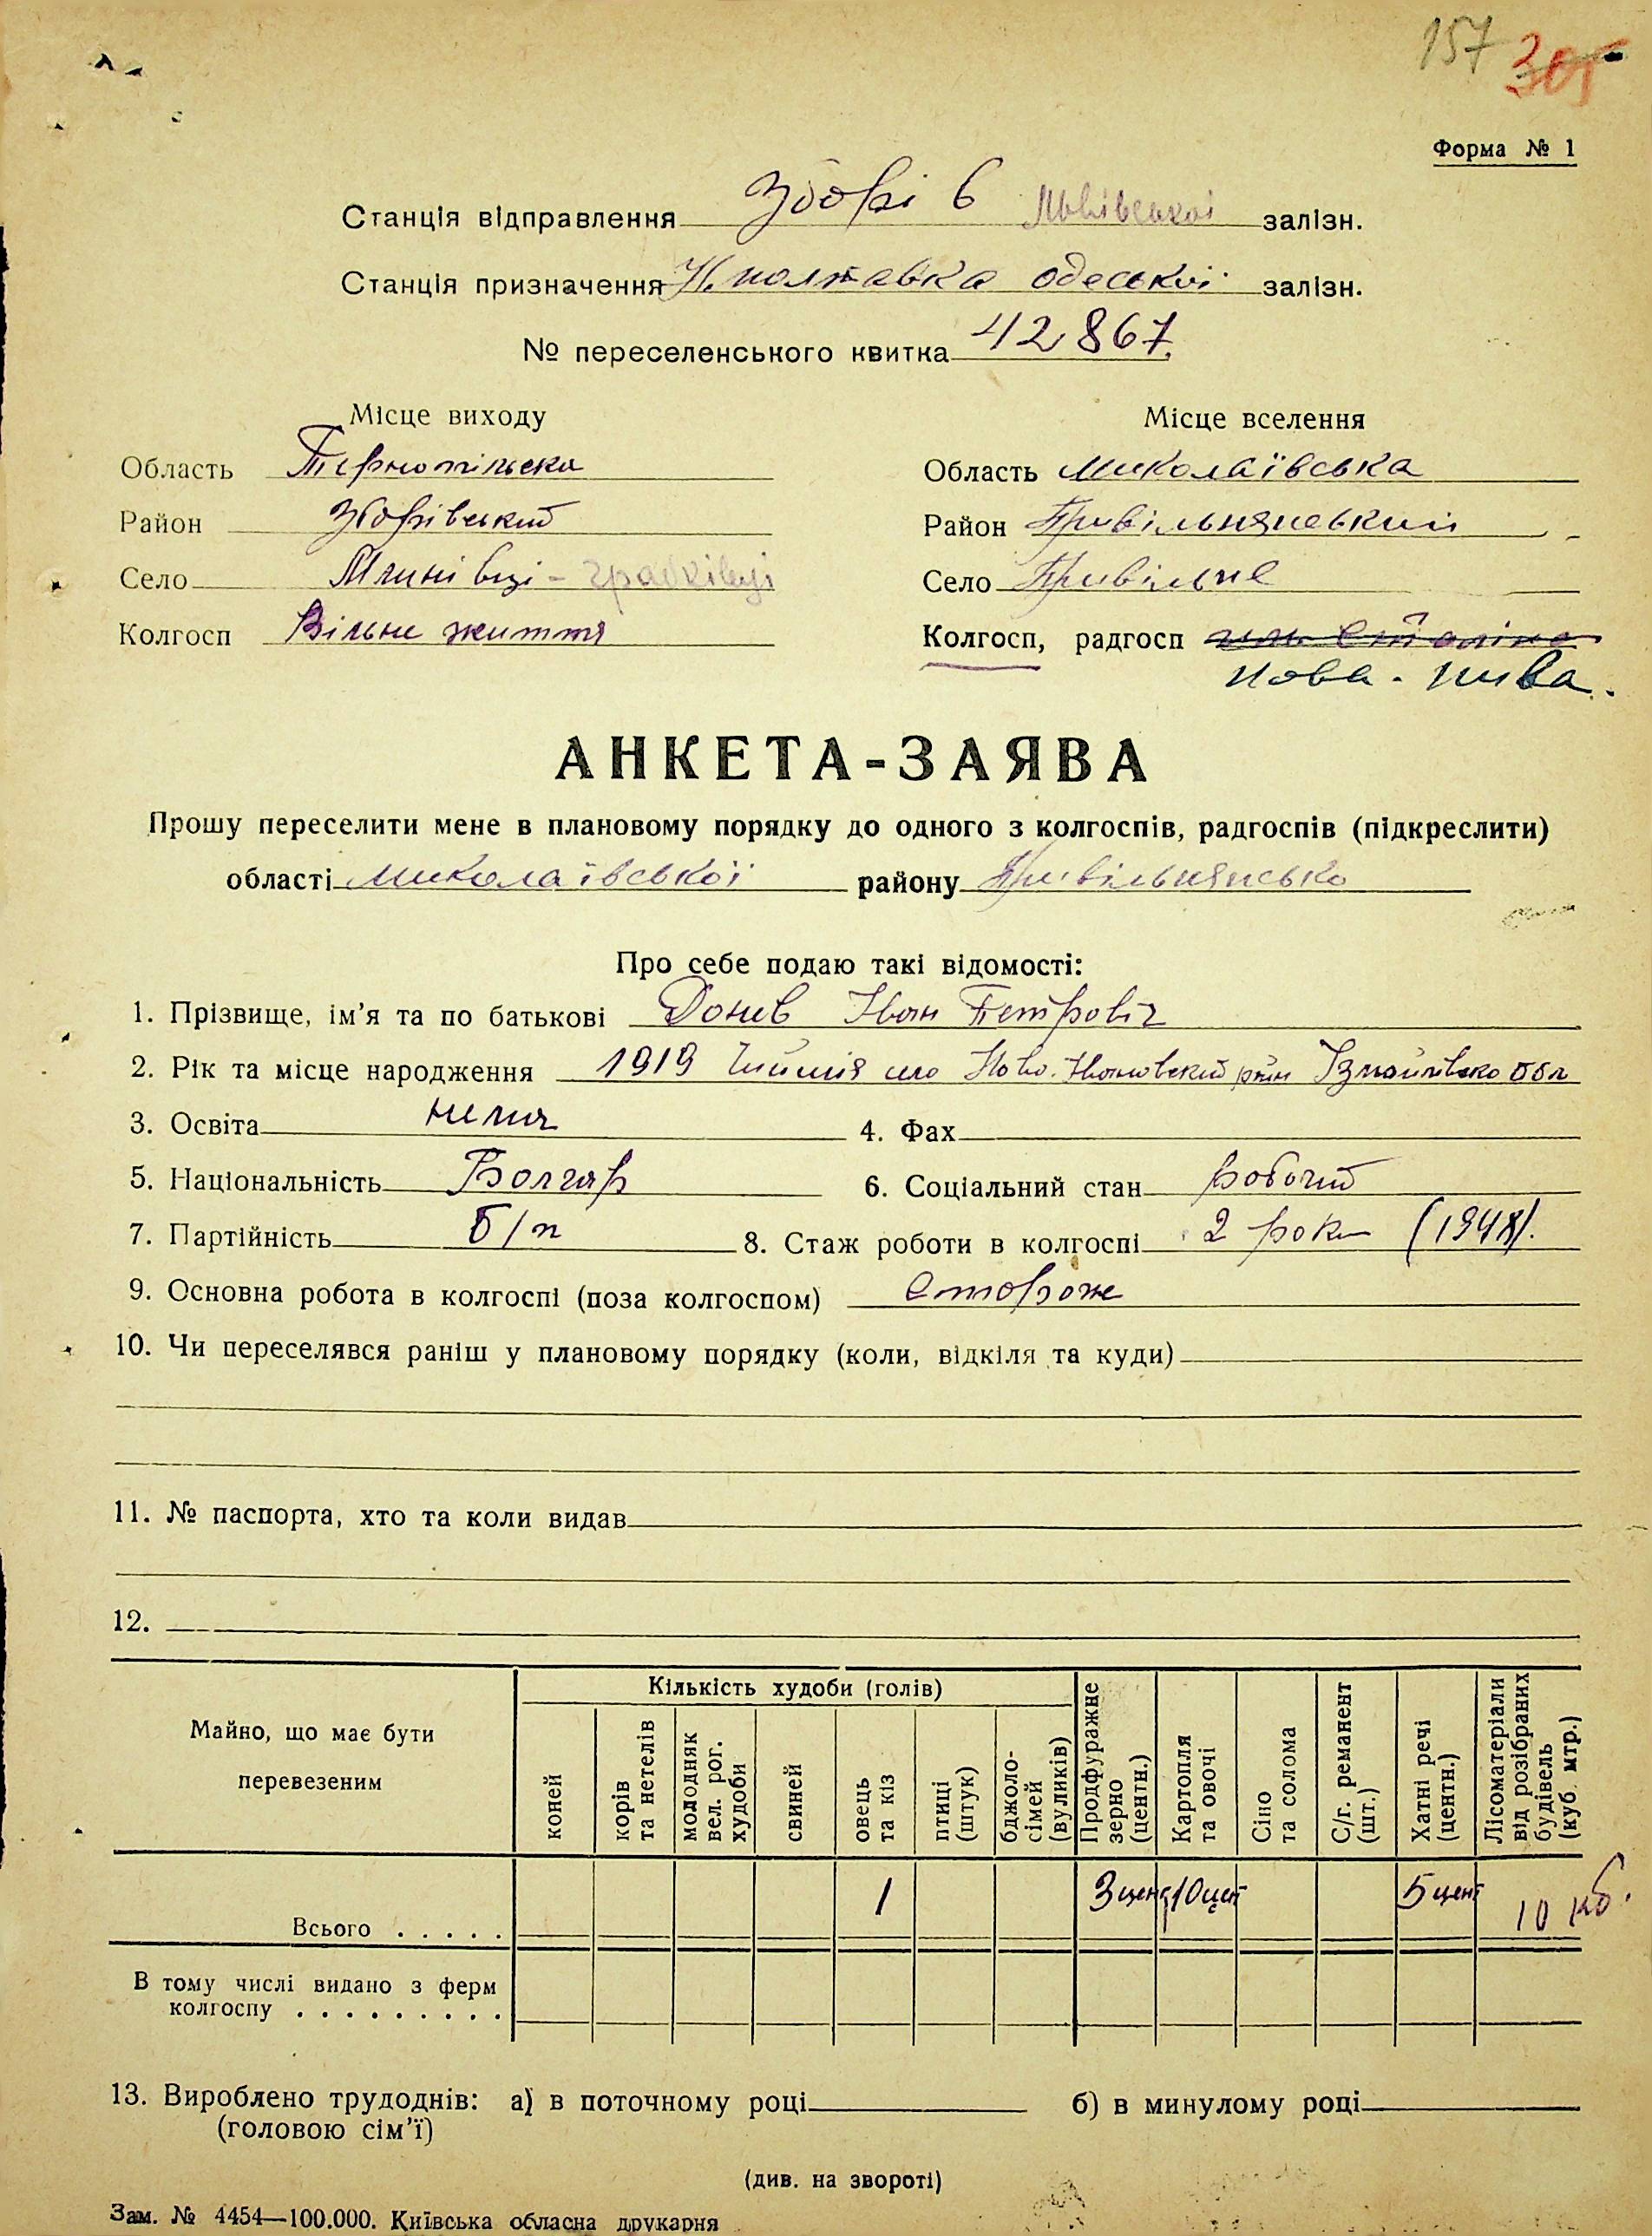 157 305
Форма № 1
Станція відправлення Зборів Львівської залізн.
Станція призначення Н. полтавка одеської залізн.
№ переселенського квитка 42867.
Місце виходу
Область Тернопільска
Район Зборівський
Село Млинівці - грабківці
Колгосп Вільне життя
Місце вселення
Область Миколаївська
Район Привільнянський
Село Привільне
Колгосп, радгосп им Сталіна
Нова - нива.
АНКЕТА-ЗАЯВА
Прошу переселити мене в плановому порядку до одного з колгоспів, радгоспів (підкреслити)
області Миколаївської району Привільнянсько
Про себе подаю такі відомості:
1. Прізвище, ім'я та по батькові Донев Іван Петровіч
2. Рік та місце народження 1919 Чийшія село Ново-Івановский рйн Ізмаілівско обл
3. Освіта нема 4. Фах
5. Національність Болгар 6. Соціальний стан робочий
7. Партійність Б/п 8. Стаж роботи в колгоспі 2 роки (1948).
9. Основна робота в колгоспі (поза колгоспом) Сторож
10. Чи переселявся раніш у плановому порядку (коли, відкіля та куди)
11. № паспорта, хто та коли видав
12.
Майно, що має бути
перевезеним
Кількість худоби (голів)
коней
корів
та нетелів
молодняк
вел. рог.
худоби
свиней
овець
та кіз
птиці
(штук)
бджоло-
сімей
(вуликів)
Продфуражне
зерно
(центн.)
Картопля
та овочі
Сіно
та солома
С/г. реманент
(шт.)
Хатні речі
(центн.)
Лісоматеріали
від розібраних
будівель
(куб. мтр.)
Всього . . . . . 1 3 цент 10 цет 5 цент 10 кб.
В тому числі видано з ферм
колгоспу . . . . . . . . .
13. Вироблено трудоднів: а) в поточному році б) в минулому році
(головою сім'ї)
(див. на звороті)
Зам. № 4454—100.000. Київська обласна друкарня